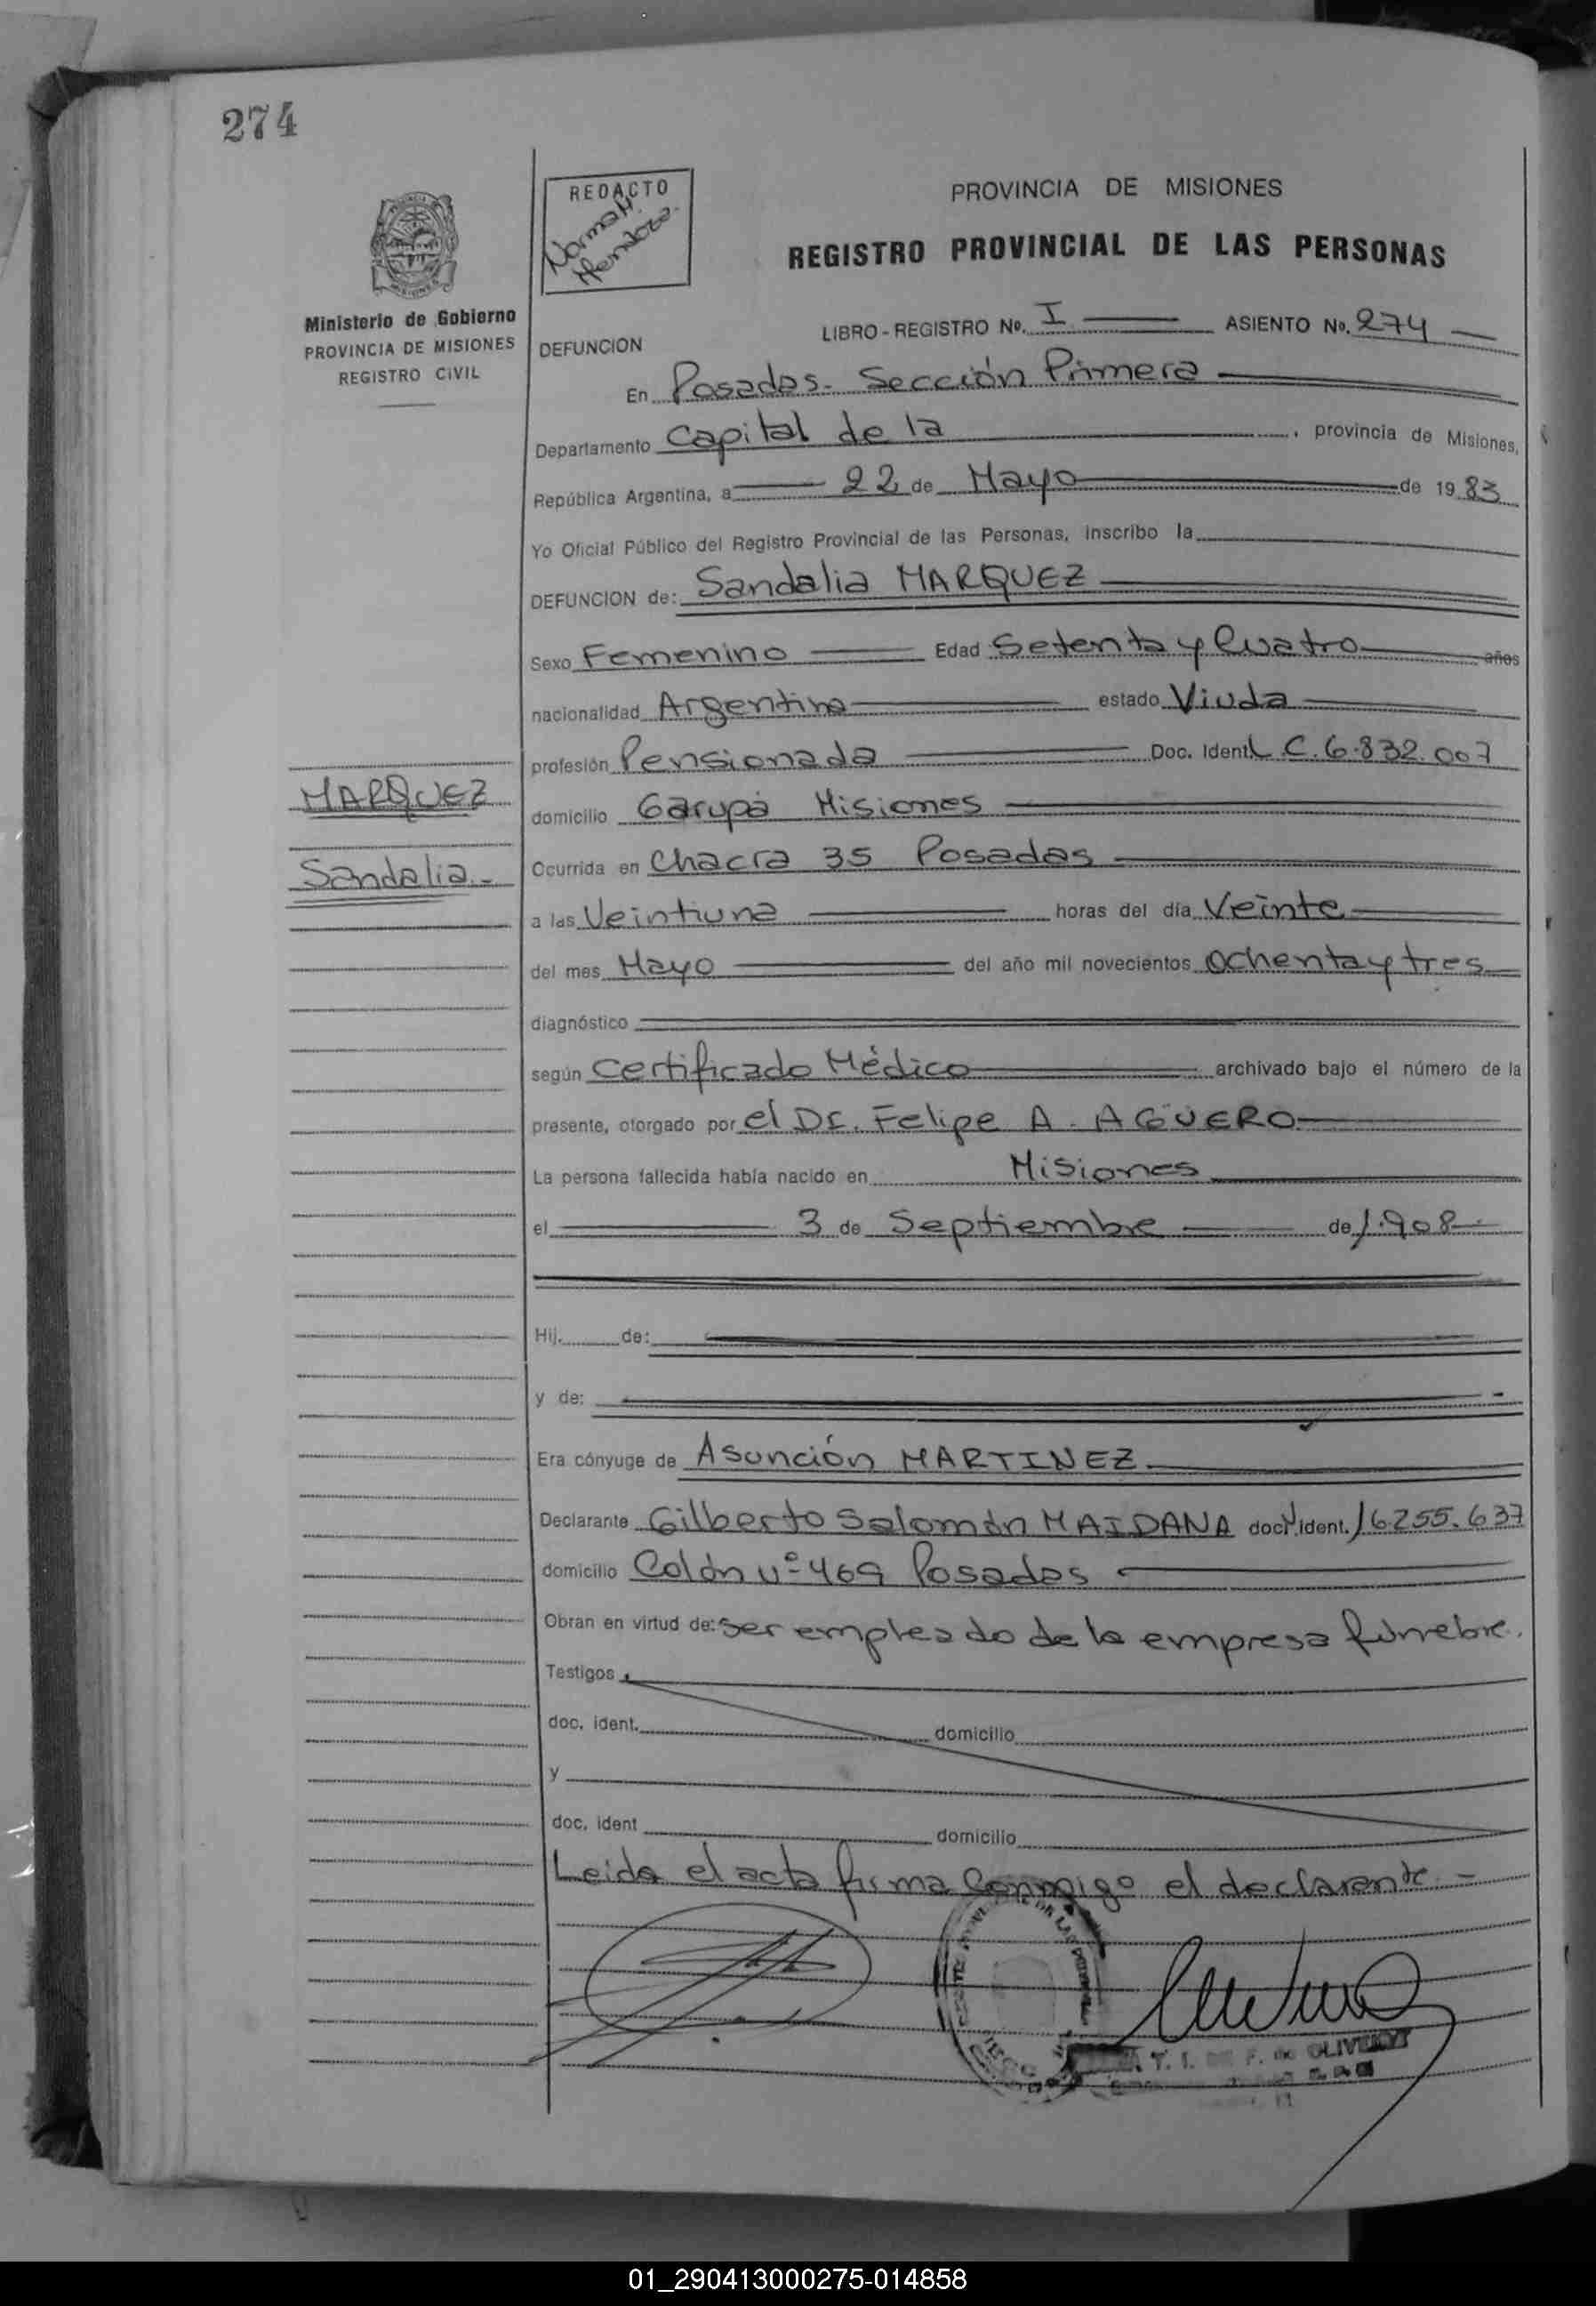 274
REDACTO
Norma H.
Mendoza.
PROVINCIA DE MISIONES
REGISTRO PROVINCIAL DE LAS PERSONAS
Ministerio de Gobierno
PROVINCIA DE MISIONES
REGISTRO CIVIL
LIBRO - REGISTRO No. I ASIENTO No. 274
DEFUNCION
En Posadas. Sección Primera
Departamento Capital de la , provincia de Misiones,
República Argentina, a 22 de Mayo de 1983
Yo Oficial Público del Registro Provincial de las Personas, inscribo la
DEFUNCION de: Sandalia MARQUEZ
Sexo Femenino Edad Setenta y Cuatro años
nacionalidad Argentina estado Viuda
profesión Pensionada Doc. Ident. L C. 6.832.007
MARQUEZ
domicilio Garupá Misiones
Sandalia.-
Ocurrida en Chacra 35 Posadas
a las Veintiuna horas del día Veinte
del mes Mayo del año mil novecientos Ochenta y tres
diagnóstico
según Certificado Médico archivado bajo el número de la
presente, otorgado por el Dr. Felipe A. AGÜERO
La persona fallecida había nacido en Misiones
el 3 de Septiembre de 1.908
Hij. de:
y de:
Era cónyuge de Asunción MARTINEZ.
Declarante Gilberto Salomón MAIDANA doc. Ident. 16255.637
domicilio Colón nº 469 Posadas
Obran en virtud de: Ser empleado de la empresa fúnebre.
Testigos
doc. ident. domicilio
y
doc. ident domicilio
Leida el acta firma Conmigo el declarante. -
F. de OLIVEIRA
01_290413000275-014858